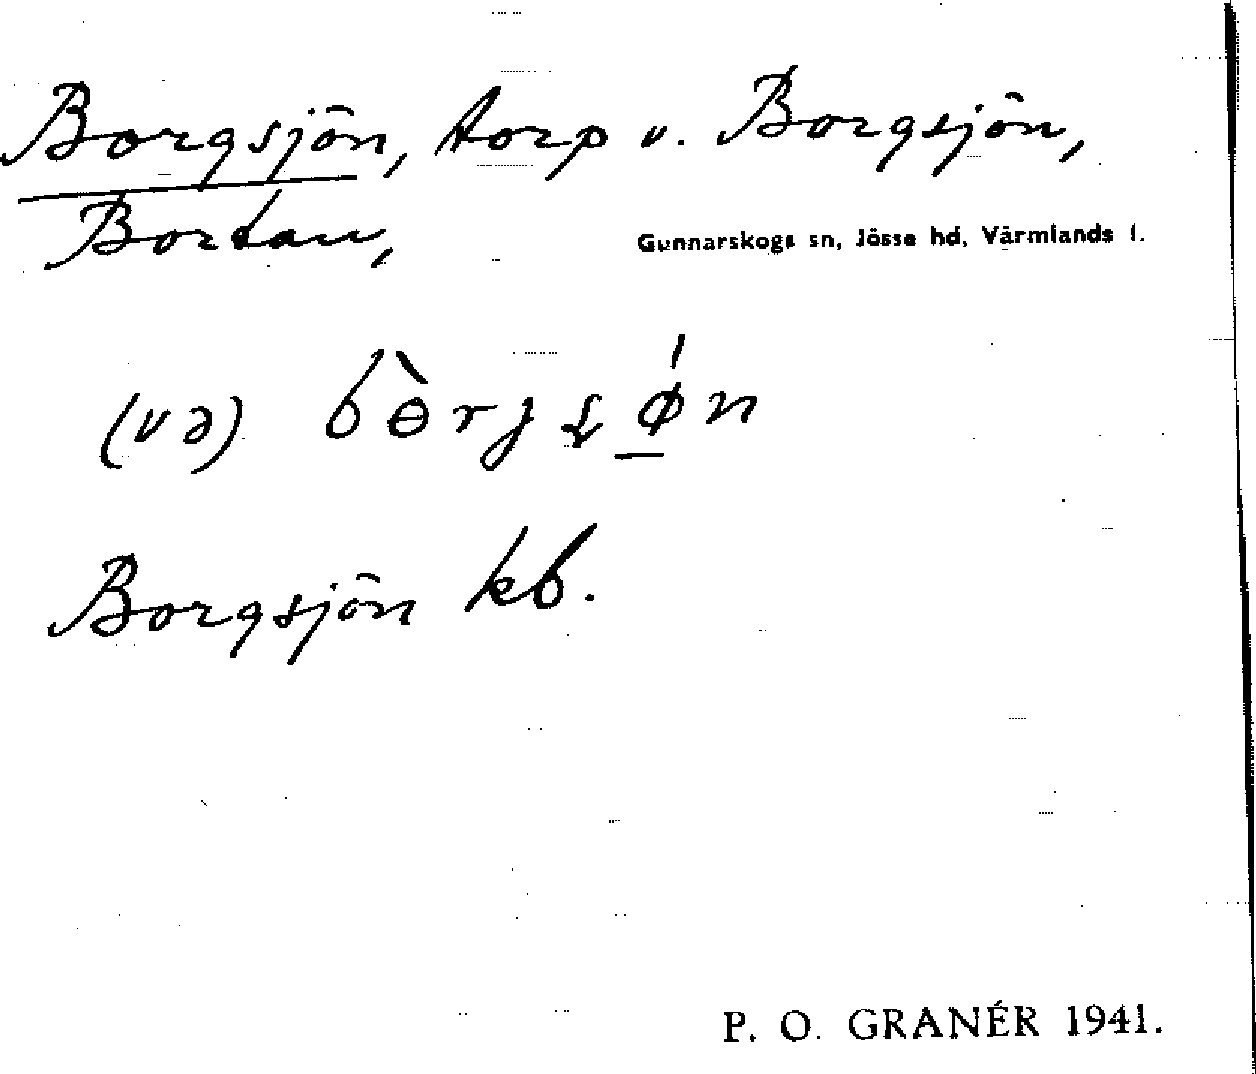 Borgsjön, torp v. Borgsjön,
Bortan,
Gunnarskogs sn, Jösse hd, Värmlands l.
(və) bɵ̀rjʂǿ̲n
Borgsjön kb.
P. O. GRANÉR 1941.